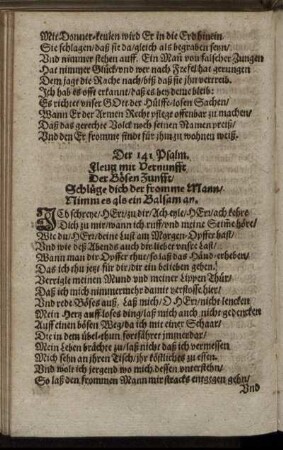 Mit Donner-keulen wird Er in die Erd hinein
Sie schlagen/ daß sie da/ gleich als begraben seyn/
Und nimmer stehen auff. Ein Man von falscher Zungen
Hat nimmer Glück und wer nach Frefel hat gerungen
Dem jagt die Rache nach/ biß daß sie jhn vertreib.
Ich hab es offt erkant/ daß es bey deme bleib:
Es richtet unser GOtt der Hülffe-losen Sachen/
Wann Er der Armen Recht pflegt offenbar zu machen/
Daß das gerechte Volck noch seinen Namen preiß/
Und den Er fromme findt für ihm zu wohnen weiß.
Der 141 Psalm.
Fleug mit Vernunfft
Der Bösen Zunfft/
Schlüge dich der fromme Mann/
Nimm es als ein Balsam an.
ICh schreye/ HErr/ zu dir/ Ach eyle/ HErr/ ach kehre
Dich zu mir/ wann ich ruff/ und meine Stimme höre/
Wie du/ HErr/ deine Lust am Morgen-Opffer hast/
Und wie deß Abends auch dir lieb ist unser Last/
Wann man dir Opffer thut/ so laß das Händ-erheben/
Das ich thu jetzt für dir/ dir ein belieben geben!
Verrigle meinen Mund und meiner Lippen Thür/
Daß ich mich nimmermehr damit verstosse hier/
Und rede Böses auß. Laß mich/ O HErr/ nicht lencken
Mein Hertz auff loses ding/ laß mich auch nicht gedencken
Auff einen bösen Weg/ da ich mit einer Schaar/
Die in dem übel-thun fortfähret jmmerdar/
Mein Leben brächte zu/ laß nicht daß ich vermessen
Mich sehn an jhren Tisch/ jhr köstliches zu essen.
Und wolt ich jergend wo mich dessen unterstehn/
So laß den frommen Mann mir stracks entgegen gehn/
Und